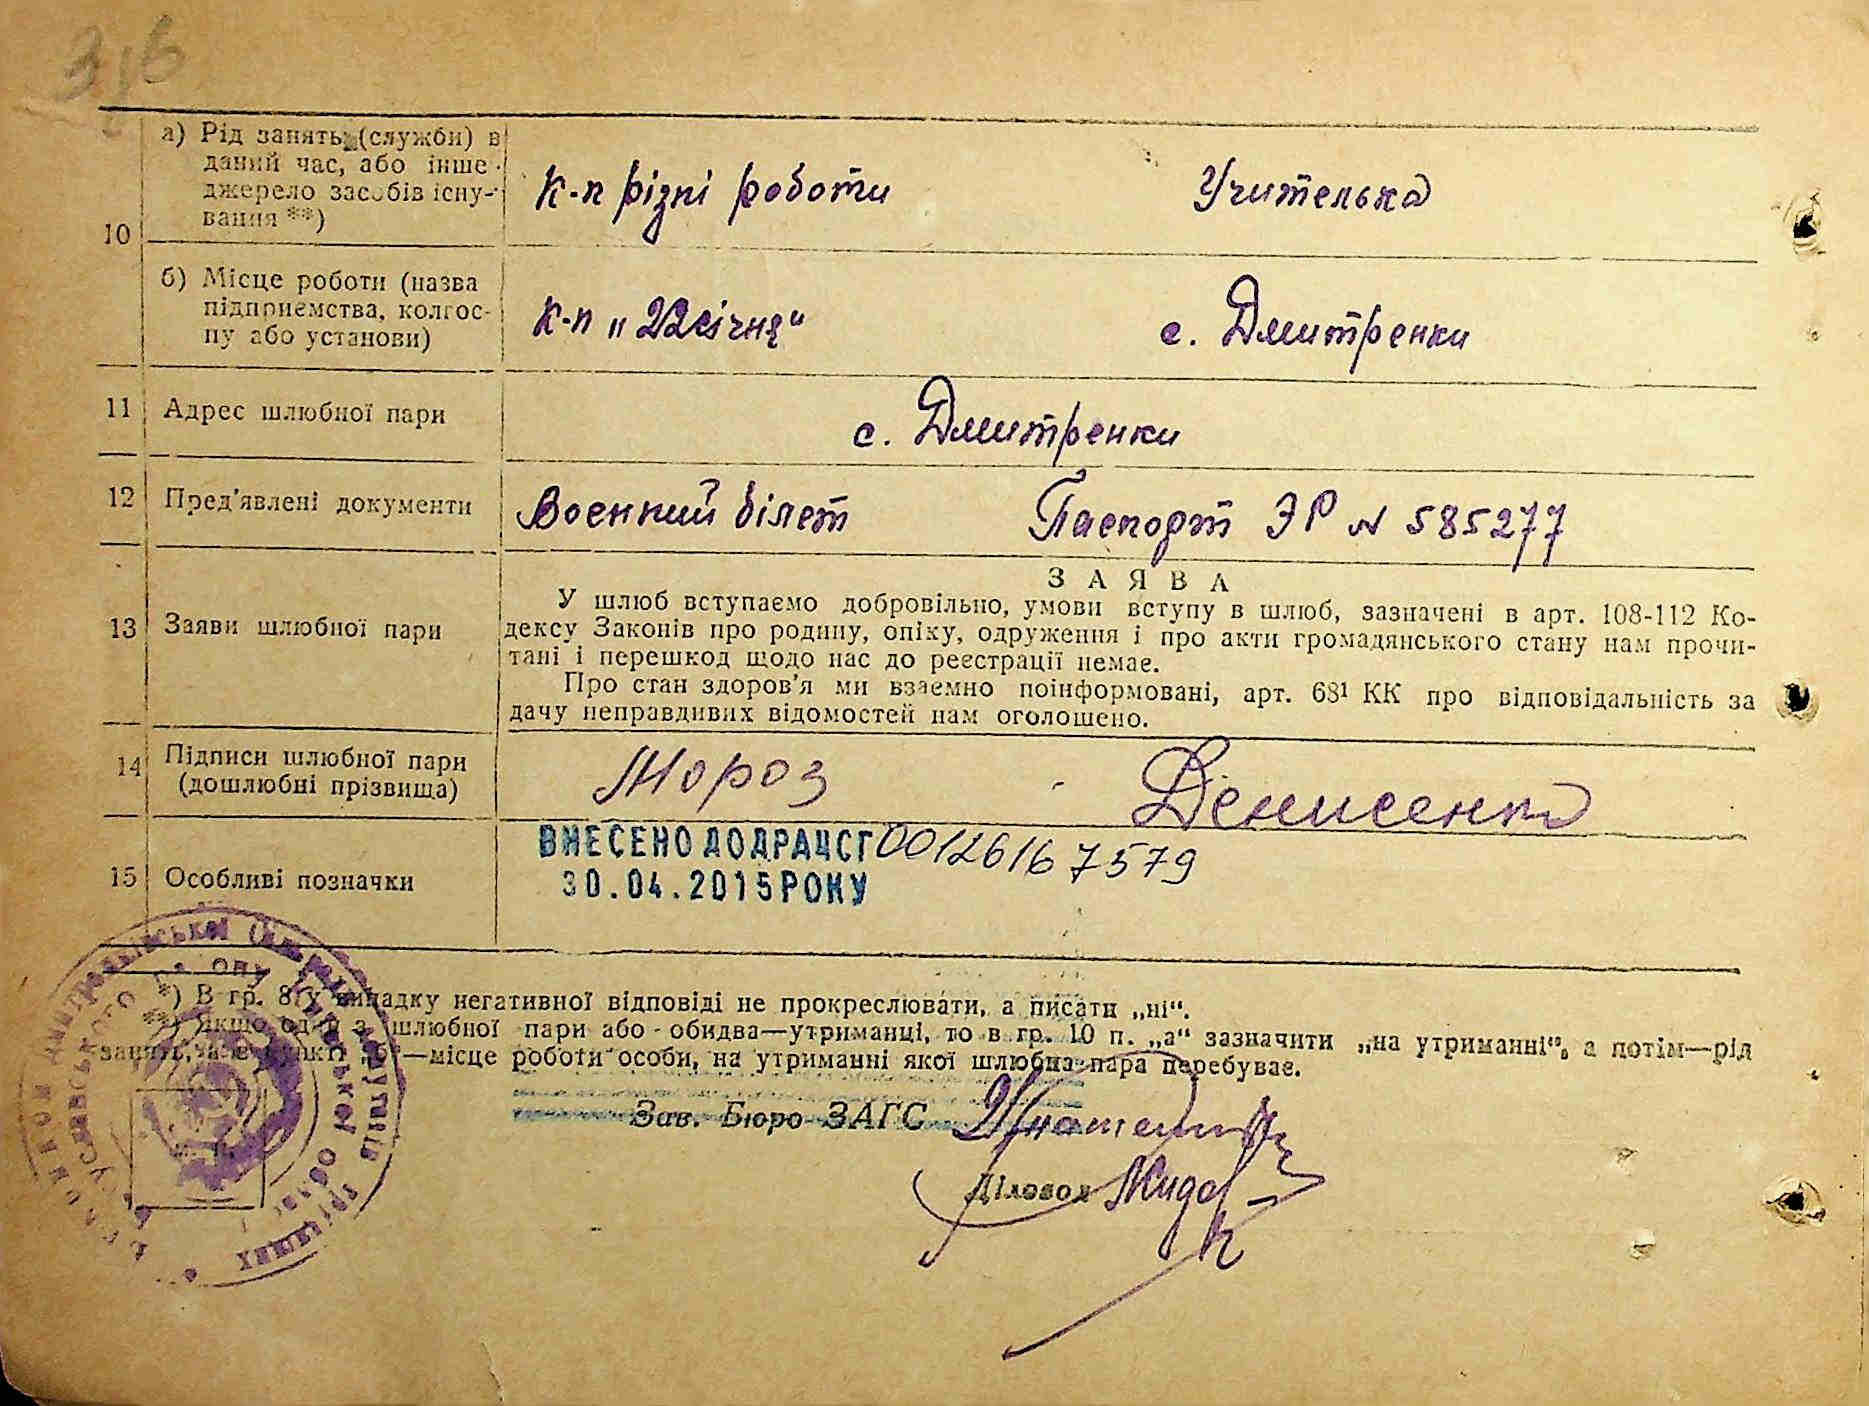 316
10
а) Рід занять (служби) в
даний час, або інше
джерело засобів існу-
вання **)
К-п різні роботи
Учителька
б) Місце роботи (назва
підприємства, колгос-
пу або установи)
К-п „22 січня"
с. Дмитренки
11 Адрес шлюбної пари
с. Дмитренки
12 Пред'явлені документи
Военний білет
Паспорт ЭР N 585277
13 Заяви шлюбної пари
ЗАЯВА
У шлюб вступаємо добровільно, умови вступу в шлюб, зазначені в арт. 108-112 Ко-
дексу Законів про родину, опіку, одруження і про акти громадянського стану нам прочи-
тані і перешкод щодо нас до реєстрації немає.
Про стан здоров'я ми взаємно поінформовані, арт. 68¹ КК про відповідальність за
дачу неправдивих відомостей нам оголошено.
14 Підписи шлюбної пари
(дошлюбні прізвища)
Мороз
Денисенко
15 Особливі позначки
ВНЕСЕНО ДО ДРАЦСГ 00126167579
30.04.2015 РОКУ
*) В гр. 8 у випадку негативної відповіді не прокреслювати, а писати „ні".
**) Якщо один з шлюбної пари або обидва—утриманці, то в гр. 10 п. „а" зазначити „на утриманні", а потім—рід
занять, а в пункті „б"—місце роботи особи, на утриманні якої шлюбна пара перебуває.
Зав. Бюро ЗАГС
Діловод